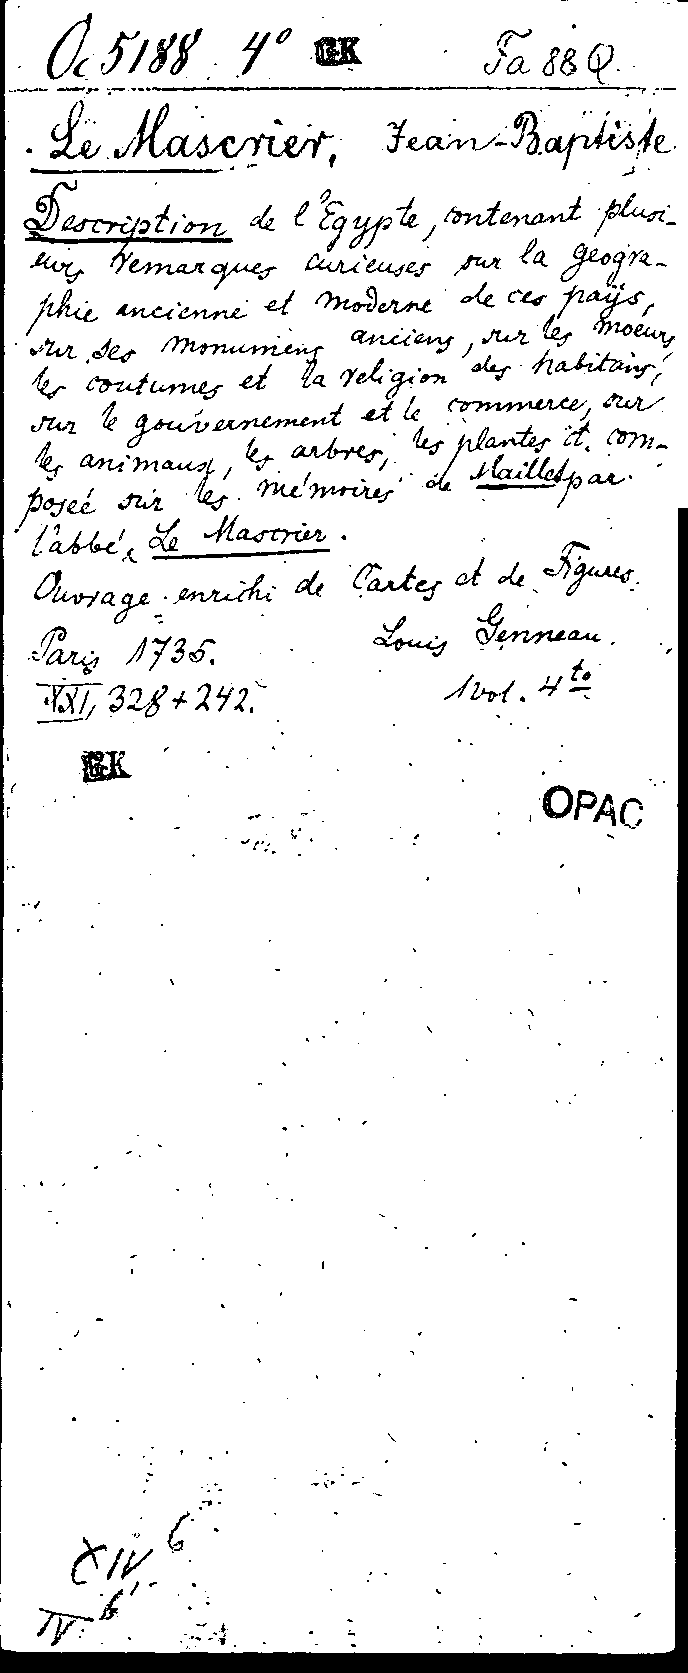 Oc 5188 4° GK Fa 88 Q.
Le Mascrier, Jean-Baptiste
Description de l'Egypte, contenant plusi-
eurs remarques curieuses sur la geogra-
phie ancienne et moderne de ces païs,
sur ses monumens anciens, sur les moeurs
les coutumes et la religion des habitans,
sur le gouvernement et le commerce, sur
les animaux, les arbres, les plantes ct. com-
poseé sur les mémoires de Maillet par
l'abbé Le Mascrier.
Ouvrage enrichi de Cartes et de Figures.
Paris 1735. Louis Genneau.
XXI, 328+242. 1 vol. 4to
GK
OPAC
XIV 6
IV 6